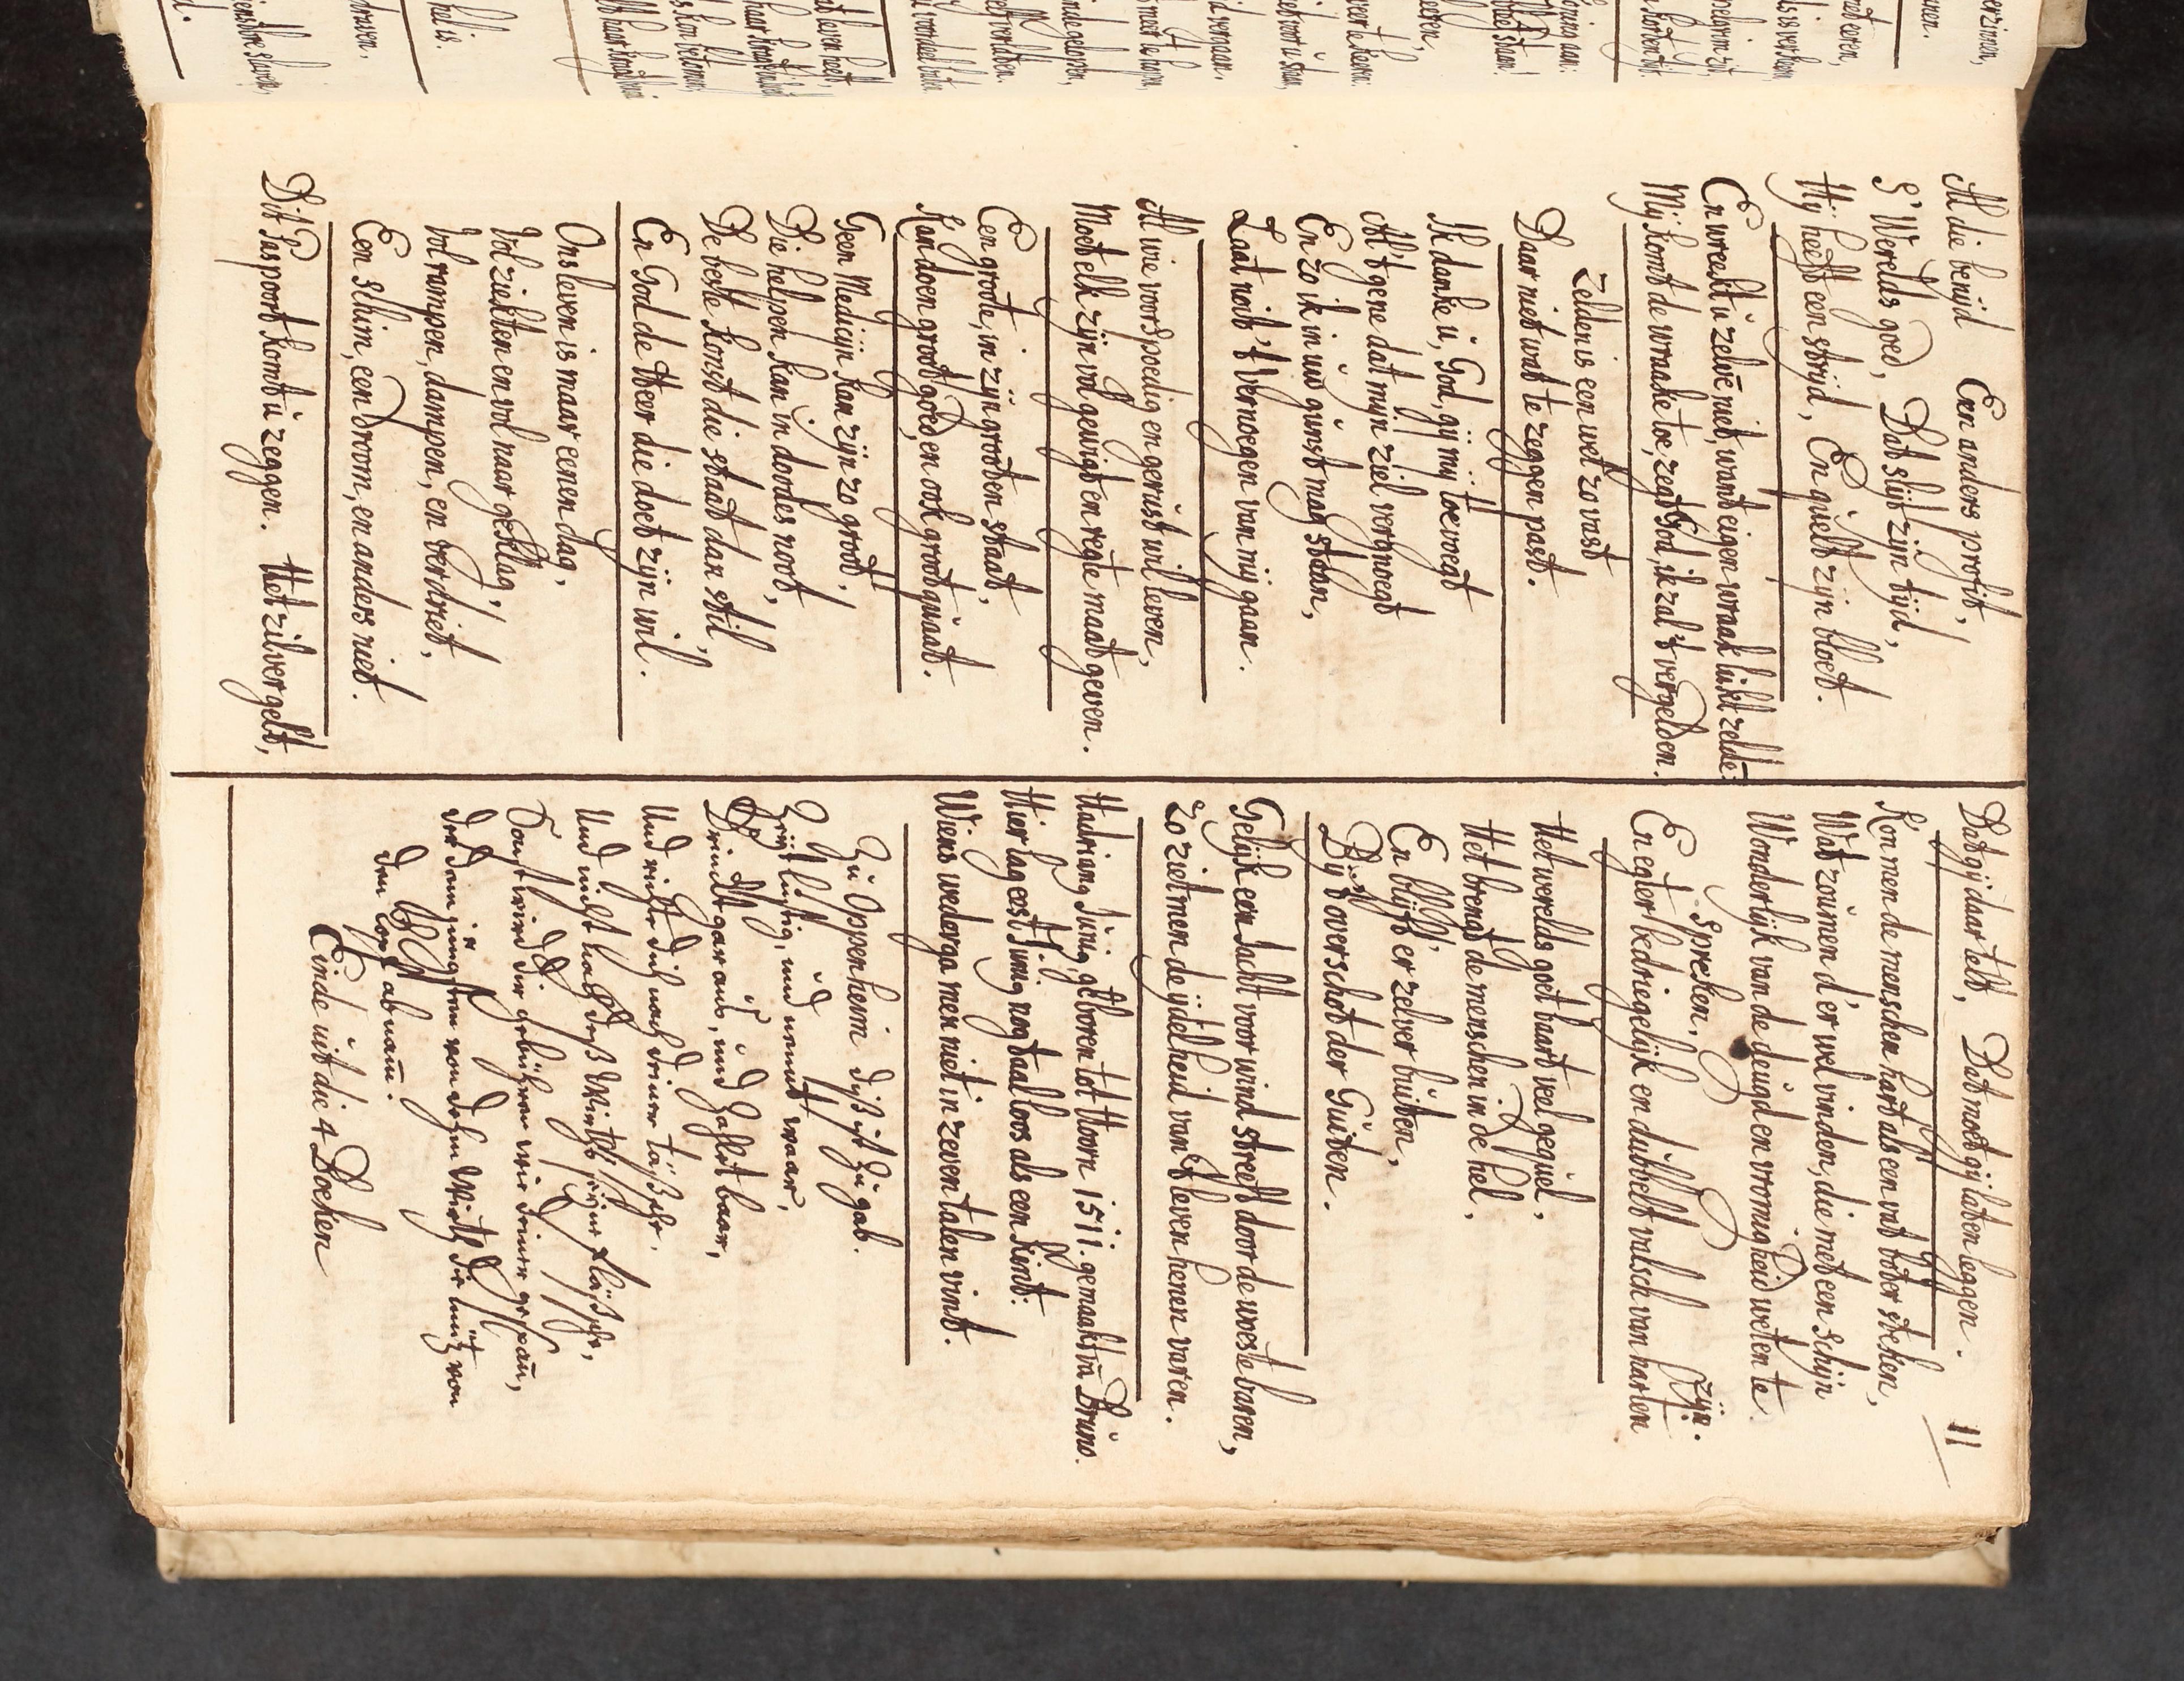 Al die benijd Een anders profijt,
S'Werelds goed, Dat slijt zijn tijd,
Hij heeft een strijd, En quelt zijn bloet.
En wreekt u zelvē niet, want eigen wraak lukt zeldē:
Mij komt de wraake toe, zegt God, ik zal 't vergelden.
Zelden is een wet zo vast
Daar niet wat te zeggen past.
Ik danke u, God, gij mij toevoegt
Al 't gene dat mijn ziel vergnoegt
En zo ik in uw gunst mag staan,
Laat noit 't vernoegen van mij gaan.
Al wie voorspoedig en gerust wil leven,
Moet elk zijn vol gewigt en regte maat geven.
Een groote, in zijn grooten staat,
Kan doen groot goed, en ook groot quaat.
Geen Medicijn kan zijn zo groot,
Die helpen kan in doodes noot,
De beste konst die staat dan stil,
En God de Heer die doet zijn wil.
Ons leven is maar eenen dag,
Vol ziekten en vol naar geklag,
Vol rampen, dampen, en verdriet,
Een schim, een droom, en anders niet.
Dit Paspoort komt u zeggen. Het zilvergelt,
11
Dat gij daar telt, Dat moet gij laten leggen.
Kon men de menschen hart als een vat boter steken,
Wat zoumen d'er wel vinden, die met een schijn
Wonderlijk van de deugd en vromigheid weten te
spreken,
zijn.
En egter bedriegelijk en dubbelt valsch van harten
Het werelds goet baart veel gequel,
Het brengt de menschen in de hel,
En blijft er zelver buiten,
Bij 't overschot der Guiten.
Gelijk een Jacht voor wind streeft door de woeste baren,
Zo ziet men de ijdelheid van 't leven henen varen.
Hadriang Junig geboren tot Hoorn 1511. gemaakt vā Bruno.
Hier lag eest Junig nog taal loos als een kint:
Wiens wederga men niet in zeven talen vint.
Zu Oppenheim diß ist Zugab.
Seyt lustig, und nemet waar,
Drinckt gar aus, und zahlet baar,
Und richte dich nach deiner täßche.
Und nicht nach deß Wirtzs seiner fläßche,
Sonst wird dir gebühren wie deiner gespaū,
der dem jüngsten von dehm Wirtz die mütz von
den kopf abnaūt.
Einde uit die 4 Boeken